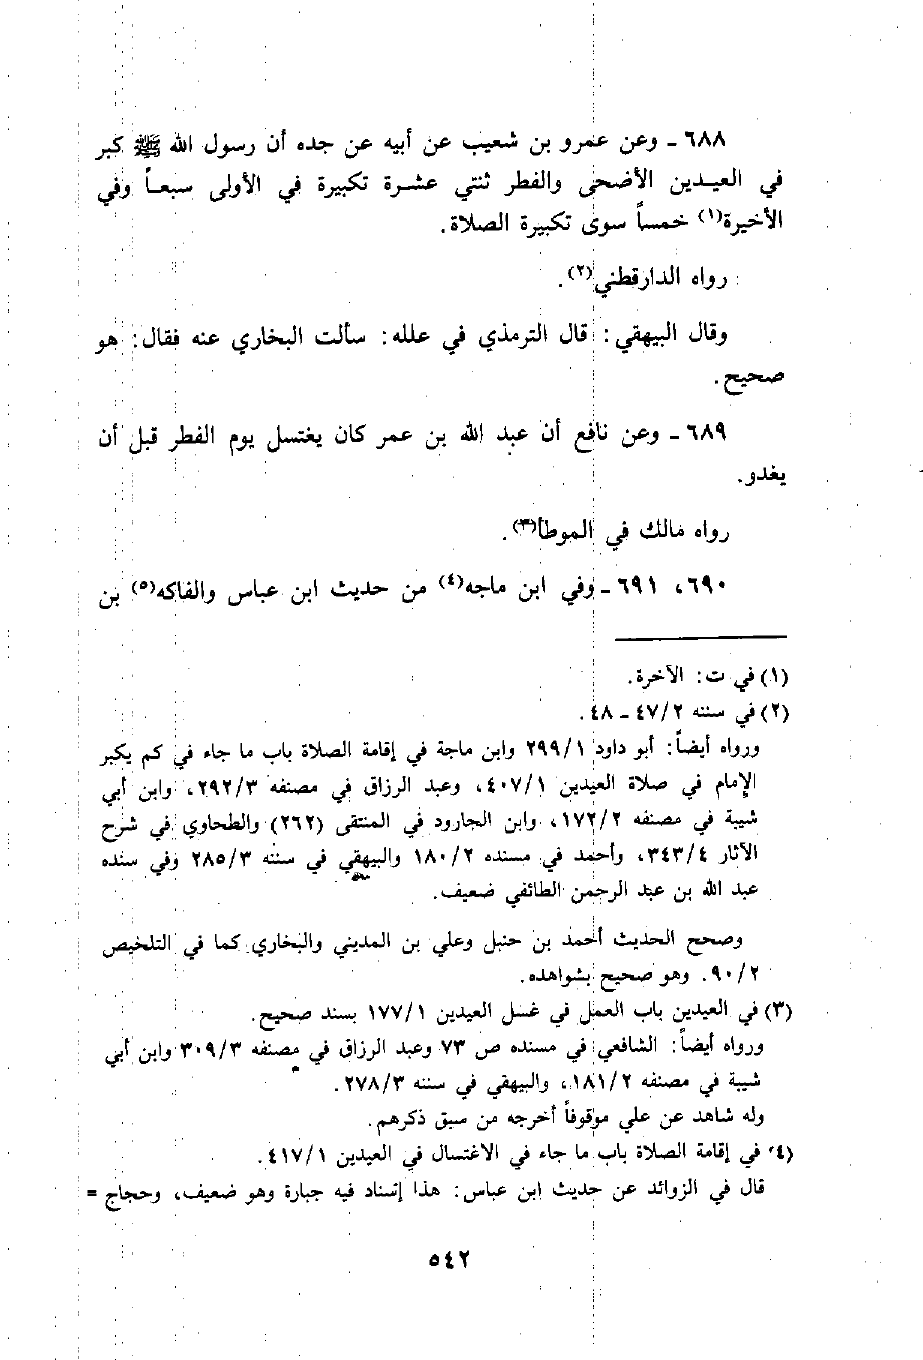 ٦٨٨ - وعن عمرو بن شعيب عن أبيه عن جده أن رسول الله ﷺ كبر
في العيدين الأضحى والفطر ثنتي عشرة تكبيرة في الأولى سبعاً وفي
الأخيرة(١) خمساً سوى تكبيرة الصلاة.
رواه الدارقطني(٢).
وقال البيهقي: قال الترمذي في علله: سألت البخاري عنه فقال: هو
صحيح.
٦٨٩ - وعن نافع أن عبد الله بن عمر كان يغتسل يوم الفطر قبل أن
يغدو.
رواه مالك في الموطأ(٣).
٦٩٠، ٦٩١ - وفي ابن ماجه(٤) من حديث ابن عباس والفاكه(٥) بن
(١) في ت: الآخرة.
(٢) في سننه ٤٧/٢ - ٤٨.
ورواه أيضاً: أبو داود ٢٩٩/١ وابن ماجة في إقامة الصلاة باب ما جاء في كم يكبر
الإمام في صلاة العيدين ٤٠٧/١، وعبد الرزاق في مصنفه ٢٩٢/٣، وابن أبي
شيبة في مصنفه ١٧٢/٢، وابن الجارود في المنتقى (٢٦٢) والطحاوي في شرح
الآثار ٣٤٣/٤، وأحمد في مسنده ١٨٠/٢ والبيهقي في سننه ٢٨٥/٣ وفي سنده
عبد الله بن عبد الرحمن الطائفي ضعيف.
وصحح الحديث أحمد بن حنبل وعلي بن المديني والبخاري كما في التلخيص
٩٠/٢. وهو صحيح بشواهده.
(٣) في العيدين باب العمل في غسل العيدين ١٧٧/١ بسند صحيح.
ورواه أيضاً: الشافعي في مسنده ص ٧٣ وعبد الرزاق في مصنفه ٣٠٩/٣ وابن أبي
شيبة في مصنفه ١٨١/٢، والبيهقي في سننه ٢٧٨/٣.
وله شاهد عن علي موقوفاً أخرجه من سبق ذكرهم.
(٤) في إقامة الصلاة باب ما جاء في الاغتسال في العيدين ٤١٧/١.
قال في الزوائد عن حديث ابن عباس: هذا إسناد فيه جبارة وهو ضعيف، وحجاج =
٥٤٢